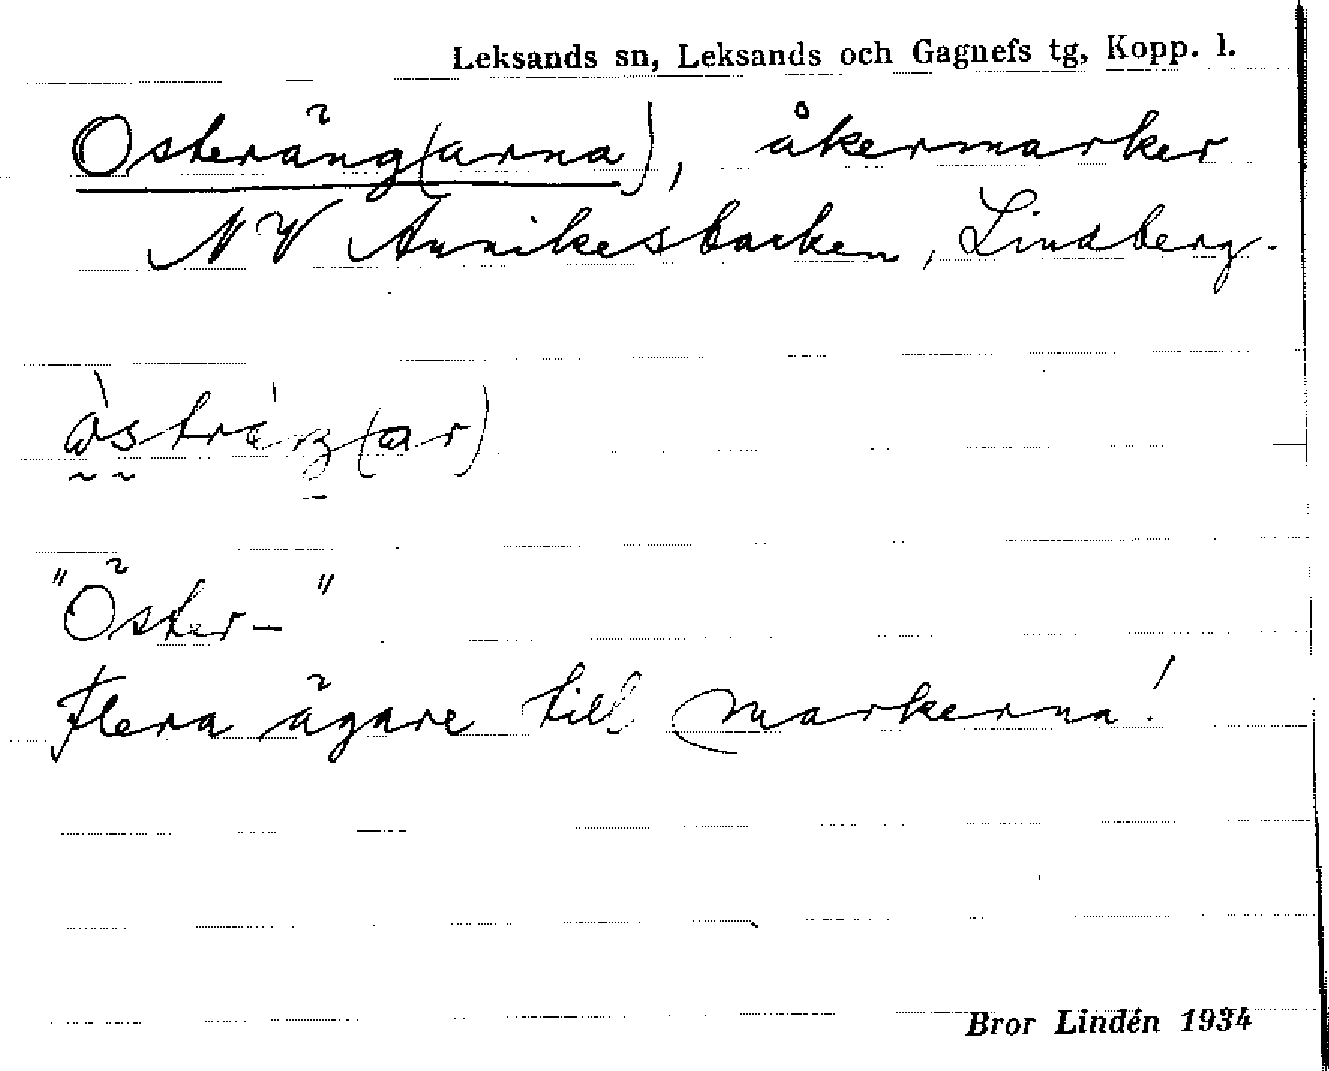 Leksands sn, Leksands och Gagnefs tg, Kopp. l.
Österäng(arna), åkermarker
NV Annikesbacken, Lindberg.
"Öster-"
Flera ägare till markerna!
Bror Lindén 1934